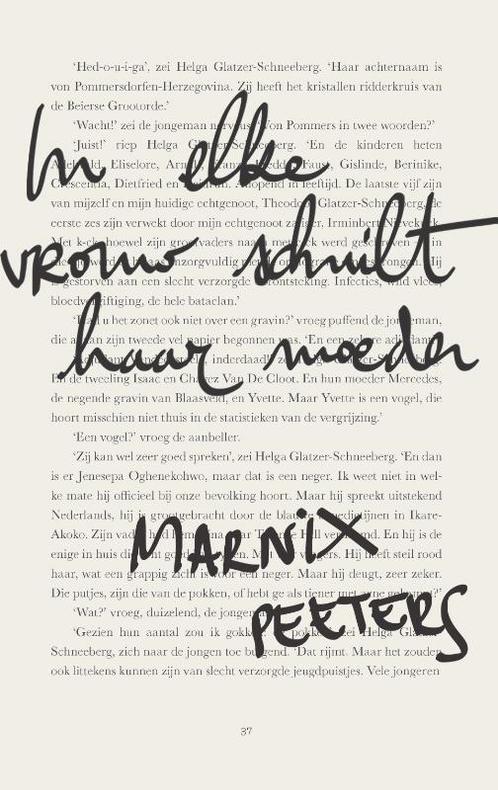 ‘Hed-o-u-i-ga’, zei Helga Glatzer-Schneeberg. ‘Haar achternaam is
von Pommersdorfen-Herzegovina. Zij heeft het kristallen ridderkruis van
de Beierse Grootorde.’
‘Wacht!’ zei de jongeman Von Pommers in twee woorden?’
In elke
‘Juist!’ riep Helga ‘En de kinderen heten
Eliselore, Gislinde, Berinike,
Crescentia, Dietfried en Aflopend in leeftijd. De laatste vijf zijn
van mijzelf en mijn huidige echtgenoot,
eerste zes zijn verwekt door mijn echtgenoot
vrouw schuilt
Met hoewel zijn grootvaders naam met werd
onzorgvuldig
gestorven aan een slecht verzorgde Infecties,
de hele bataclan.’
u het zonet ook niet over een gravin?’ vroeg puffend de jongeman,
die aan zijn tweede vel papier begonnen was. ‘En een
haar moeder
inderdaad!
En de tweeling Isaac en Van De Cloot. En hun moeder Mercedes,
de negende gravin van Blaasveld, en Yvette. Maar Yvette is een vogel, die
hoort misschien niet thuis in de statistieken van de vergrijzing.’
‘Een vogel?’ vroeg de aanbeller.
‘Zij kan wel zeer goed spreken’, zei Helga Glatzer-Schneeberg. ‘En dan
is er Jenesepa Oghenekohwo, maar dat is een neger. Ik weet niet in wel-
ke mate hij officieel bij onze bevolking hoort. Maar hij spreekt uitstekend
Nederlands, hij is grootgebracht door de in Ikare-
Akoko. Zijn En hij is de
MARNIX
enige in huis die Hij heeft steil rood
haar, wat een grappig zicht is voor een neger. Maar hij deugt, zeer zeker.
Die putjes, zijn die van de pokken, of hebt ge als tiener met
PEETERS
‘Wat?’ vroeg, duizelend, de jongeman.
‘Gezien hun aantal zou ik gokken zei Helga
Schneeberg, zich naar de jongen toe buigend. ‘Dat rijmt. Maar het zouden
ook littekens kunnen zijn van slecht verzorgde jeugdpuistjes. Vele jongeren
37